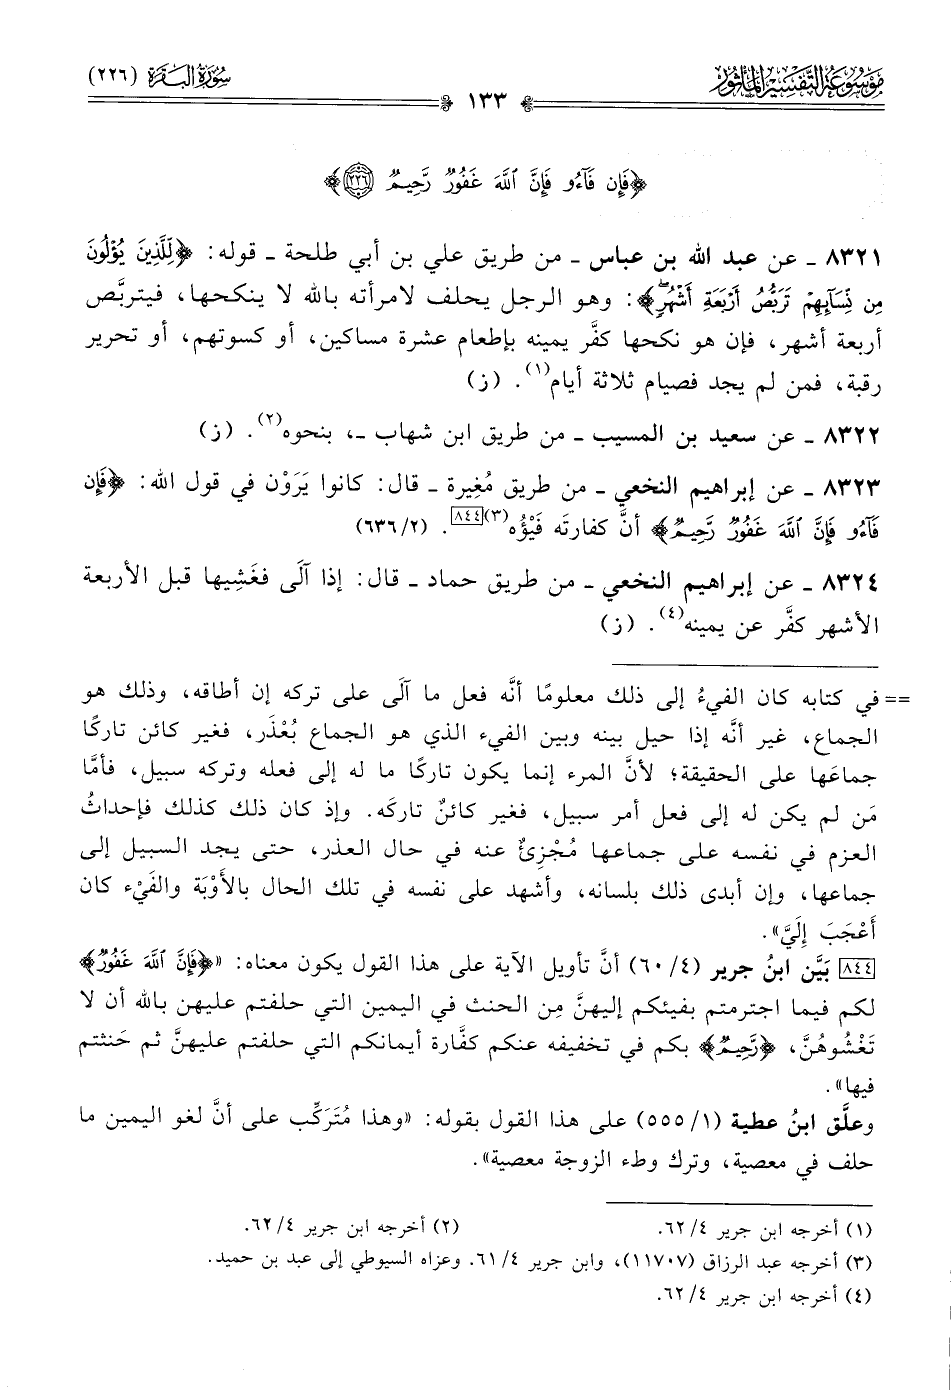 مَوْسُوعَةُ التَّفْسِيرِ المَأْثُورِ
سُورَةُ البَقَرَةِ (٢٢٦)
١٣٣
﴿فَإِن فَآءُو فَإِنَّ ٱللَّهَ غَفُورٌ رَّحِيمٌ ٢٢٦﴾
٨٣٢١ ـ عن عبد الله بن عباس ـ من طريق علي بن أبي طلحة ـ قوله: ﴿لِّلَّذِينَ يُؤْلُونَ
مِن نِّسَآئِهِمْ تَرَبُّصُ أَرْبَعَةِ أَشْهُرٍۖ﴾: وهو الرجل يحلف لامرأته بالله لا ينكحها، فيتربَّص
أربعة أشهر، فإن هو نكحها كفَّر يمينه بإطعام عشرة مساكين، أو كسوتهم، أو تحرير
رقبة، فمن لم يجد فصيام ثلاثة أيام(١). (ز)
٨٣٢٢ ـ عن سعيد بن المسيب ـ من طريق ابن شهاب ـ، بنحوه(٢). (ز)
٨٣٢٣ ـ عن إبراهيم النخعي ـ من طريق مُغِيرة ـ قال: كانوا يَرَوْن في قول الله: ﴿فَإِن
فَآءُو فَإِنَّ ٱللَّهَ غَفُورٌ رَّحِيمٌ﴾ أنَّ كفارتَه فَيْؤُه(٣)[٨٤٤]. (٦٣٦/٢)
٨٣٢٤ ـ عن إبراهيم النخعي ـ من طريق حماد ـ قال: إذا آلَى فغَشِيها قبل الأربعة
الأشهر كفَّر عن يمينه(٤). (ز)
== في كتابه كان الفيءُ إلى ذلك معلومًا أنَّه فعل ما آلَى على تركه إن أطاقه، وذلك هو
الجماع، غير أنَّه إذا حيل بينه وبين الفيء الذي هو الجماع بُعْذَر، فغير كائن تاركًا
جماعَها على الحقيقة؛ لأنَّ المرء إنما يكون تاركًا ما له إلى فعله وتركه سبيل، فأمَّا
مَن لم يكن له إلى فعل أمر سبيل، فغير كائنٌ تاركَه. وإذ كان ذلك كذلك فإحداثُ
العزم في نفسه على جماعها مُجْزِئٌ عنه في حال العذر، حتى يجد السبيل إلى
جماعها، وإن أبدى ذلك بلسانه، وأشهد على نفسه في تلك الحال بالأَوْبَة والفَيْء كان
أَعْجَبَ إِلَيَّ».
[٨٤٤] بَيَّن ابنُ جرير (٦٠/٤) أنَّ تأويل الآية على هذا القول يكون معناه: «﴿فَإِنَّ ٱللَّهَ غَفُورٌ﴾
لكم فيما اجترمتم بفيئكم إليهنَّ مِن الحنث في اليمين التي حلفتم عليهن بالله أن لا
تَغْشُوهُنَّ، ﴿رَّحِيمٌ﴾ بكم في تخفيفه عنكم كفَّارة أيمانكم التي حلفتم عليهنَّ ثم حَنثتم
فيها».
وعلَّق ابنُ عطية (٥٥٥/١) على هذا القول بقوله: «وهذا مُتَرَكِّب على أنَّ لغو اليمين ما
حلف في معصية، وترك وطء الزوجة معصية».
(١) أخرجه ابن جرير ٦٢/٤.
(٢) أخرجه ابن جرير ٦٢/٤.
(٣) أخرجه عبد الرزاق (١١٧٠٧)، وابن جرير ٦١/٤. وعزاه السيوطي إلى عبد بن حميد.
(٤) أخرجه ابن جرير ٦٢/٤.